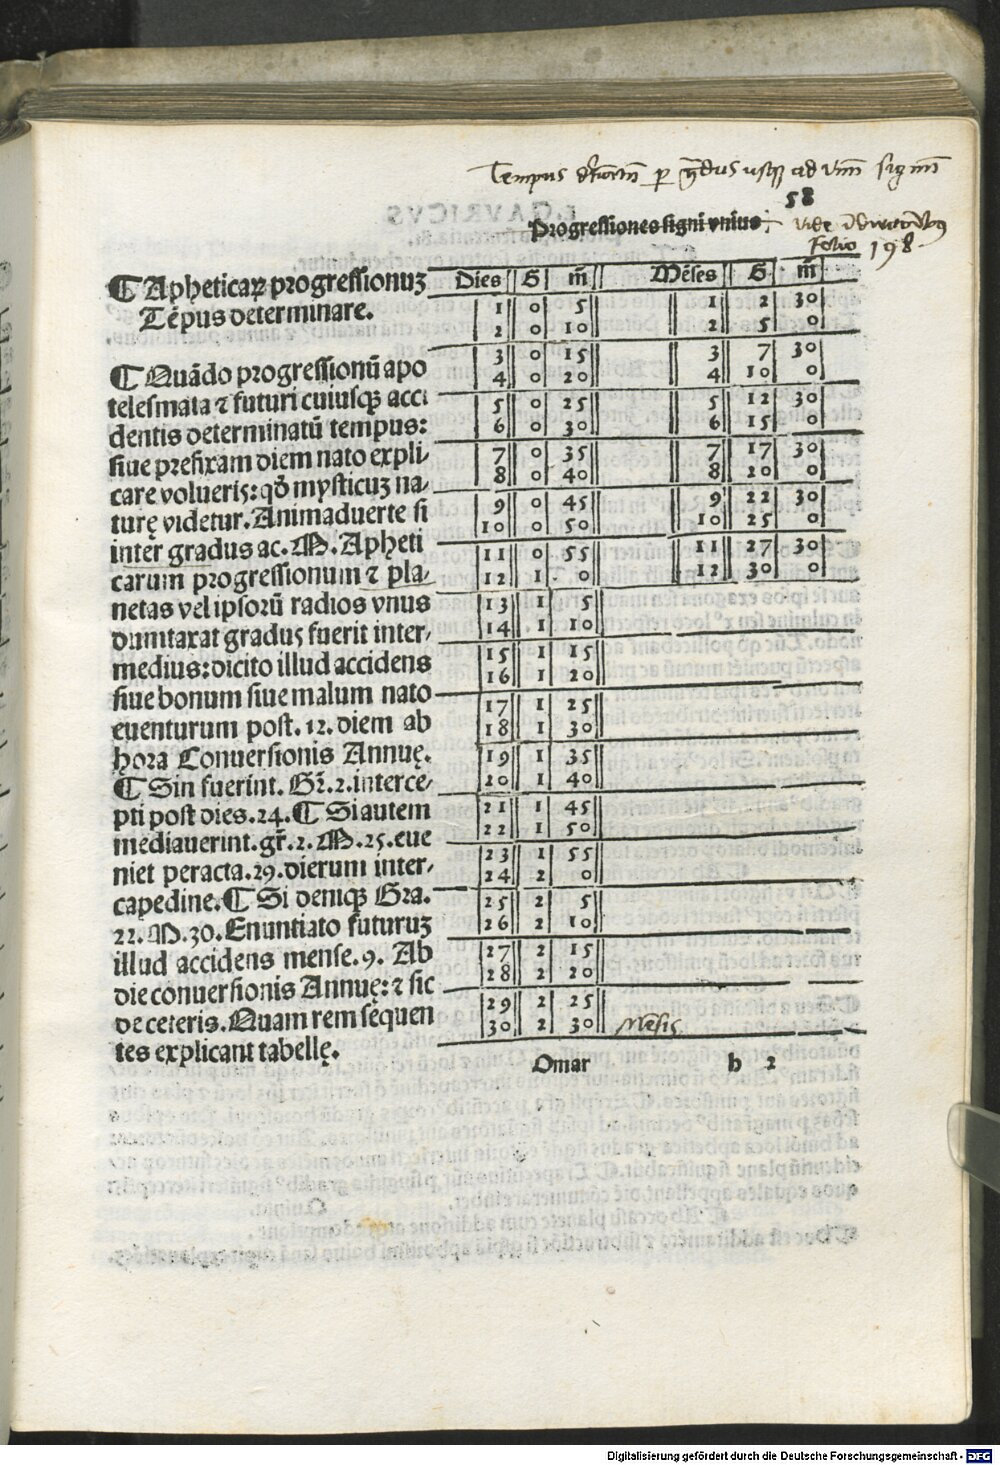 Tempus per gradus usque ad vnū signū
58
Progressiones signi vnius. vide
folio 198.
¶ Apheticaꝝ progressionuꝫ
Tēpus determinare.
Dies G m̄ Mēses G m̄
1 0 5 1 2 30
2 0 10 2 5 0
3 0 15 3 7 30
4 0 20 4 10 0
5 0 25 5 12 30
6 0 30 6 15 0
7 0 35 7 17 30
8 0 40 8 20 0
9 0 45 9 22 30
10 0 50 10 25 0
11 0 55 11 27 30
12 1 0 12 30 0
13 1 5
14 1 10
15 1 15
16 1 20
17 1 25
18 1 30
19 1 35
20 1 40
21 1 45
22 1 50
23 1 55
24 2 0
25 2 5
26 2 10
27 2 15
28 2 20
29 2 25
30 2 30 Mēsis
¶ Quādo progressionū apo
telesmata ⁊ futuri cuiusqꝫ acci
dentis determinatū tempus:
siue prefixam diem nato expli-
care volueris: qd̄ mysticuꝫ na-
turę videtur. Animaduerte si
inter gradus ac. M. Apheti
carum progressionum ⁊ pla-
netas vel ipsorū radios vnus
dumtaxat gradus fuerit inter-
medius: dicito illud accidens
siue bonum siue malum nato
euenturum post. 12. diem ab
hora Conuersionis Annuę.
¶ Sin fuerint. Gr̄. 2. interce-
pti post dies. 24. ¶ Si autem
mediauerint. gr̄. 2. M. 25. eue
niet peracta. 29. dierum inter-
capedine. ¶ Si deniqꝫ Gra.
22. M. 30. Enuntiato futuruꝫ
illud accidens mense. 9. Ab
die conuersionis Annuę: ⁊ sic
de ceteris. Quam rem sequen
tes explicant tabellę.
Omar b 2
Digitalisierung gefördert durch die Deutsche Forschungsgemeinschaft - DFG